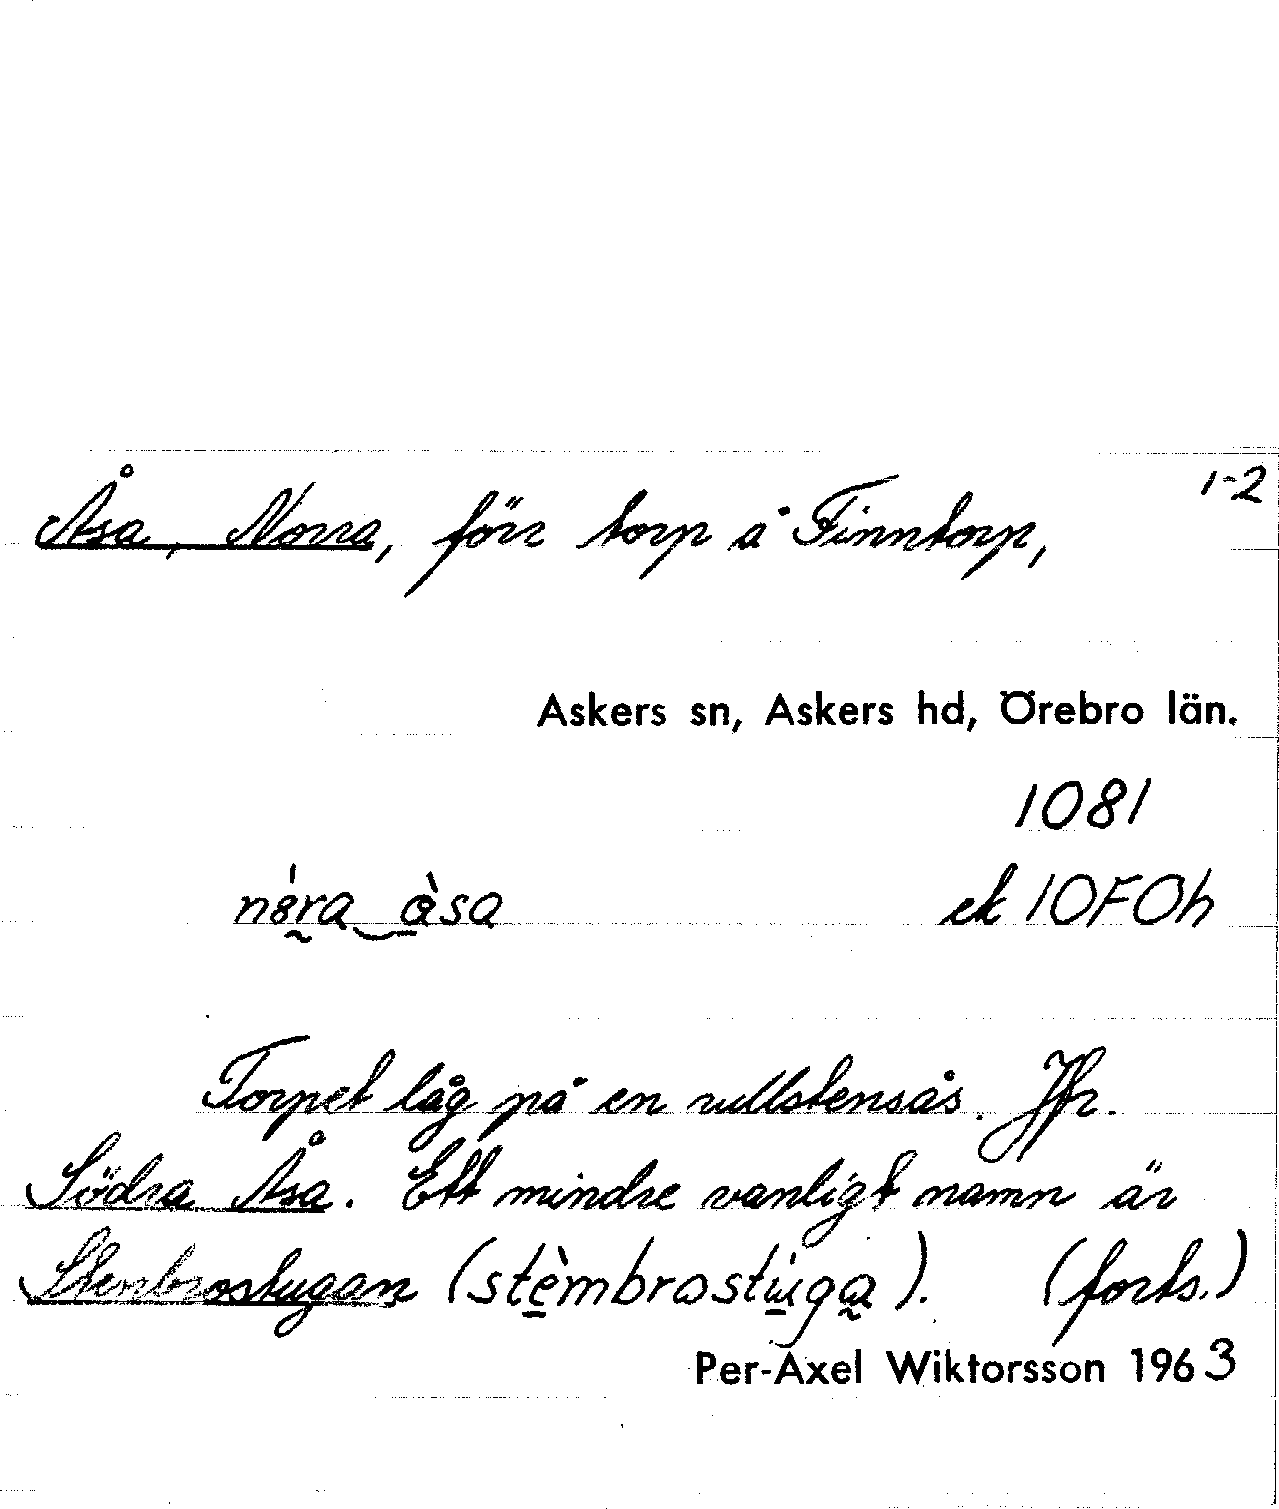 1-2
Åsa, Norra, förr torp å Finntorp,
Askers sn, Askers hd, Örebro län.
1081
ek 10F0h
Torpet låg på en rullstensås. Jfr.
Södra Åsa. Ett mindre vanligt namn är
Stenbrostugan (stèmbrostùga). (forts.)
Per-Axel Wiktorsson 1963